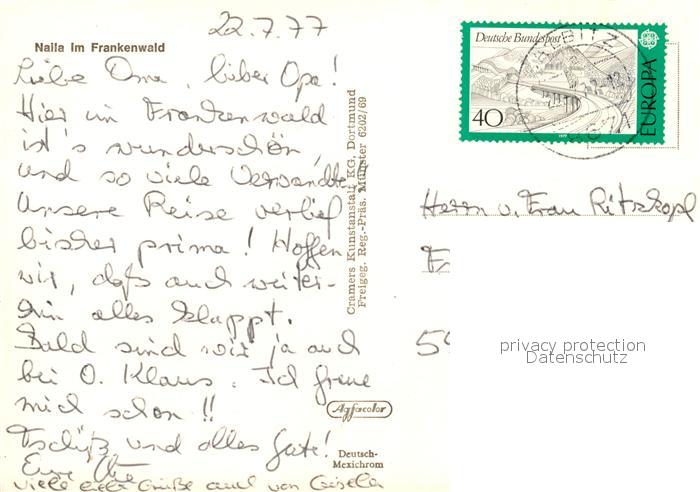 22.7.77
Naila im Frankenwald
Liebe Oma, lieber Opa!
Hier im Frankenwald
ist's wunderschön,
und so viele Verwandte
Unsere Reise verlief
bisher prima! Hoffen
wir, daß auch weiter-
hin alles klappt.
Bald sind wir ja auch
bei O. Klaus. Ich freue
mich schon!!
Tschüß und alles Gute!
Eure
viele Grüße auch von Gisela
Cramers Kunstanstalt KG. Dortmund
Freigeg. Reg.-Präs. Münster 6202/69
Agfacolor
Deutsch-
Mexichrom
Deutsche Bundespost
40
1977
EUROPA
Herrn u. Frau Ritzkopl
privacy protection
Datenschutz